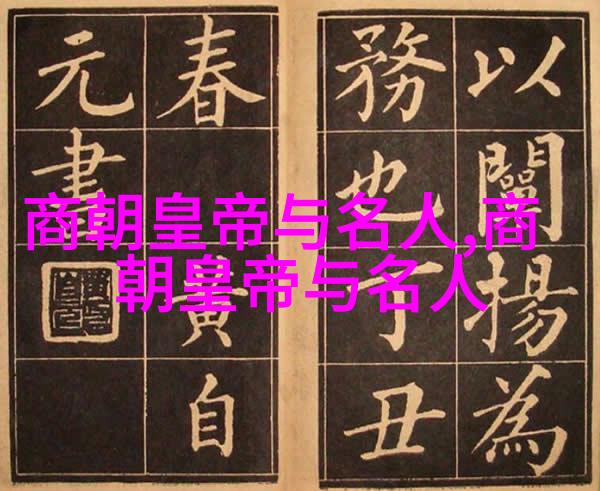 商朝皇帝与名人,商
朝皇帝与名人
以闡揚為
務也丁丑
春黃自
元書